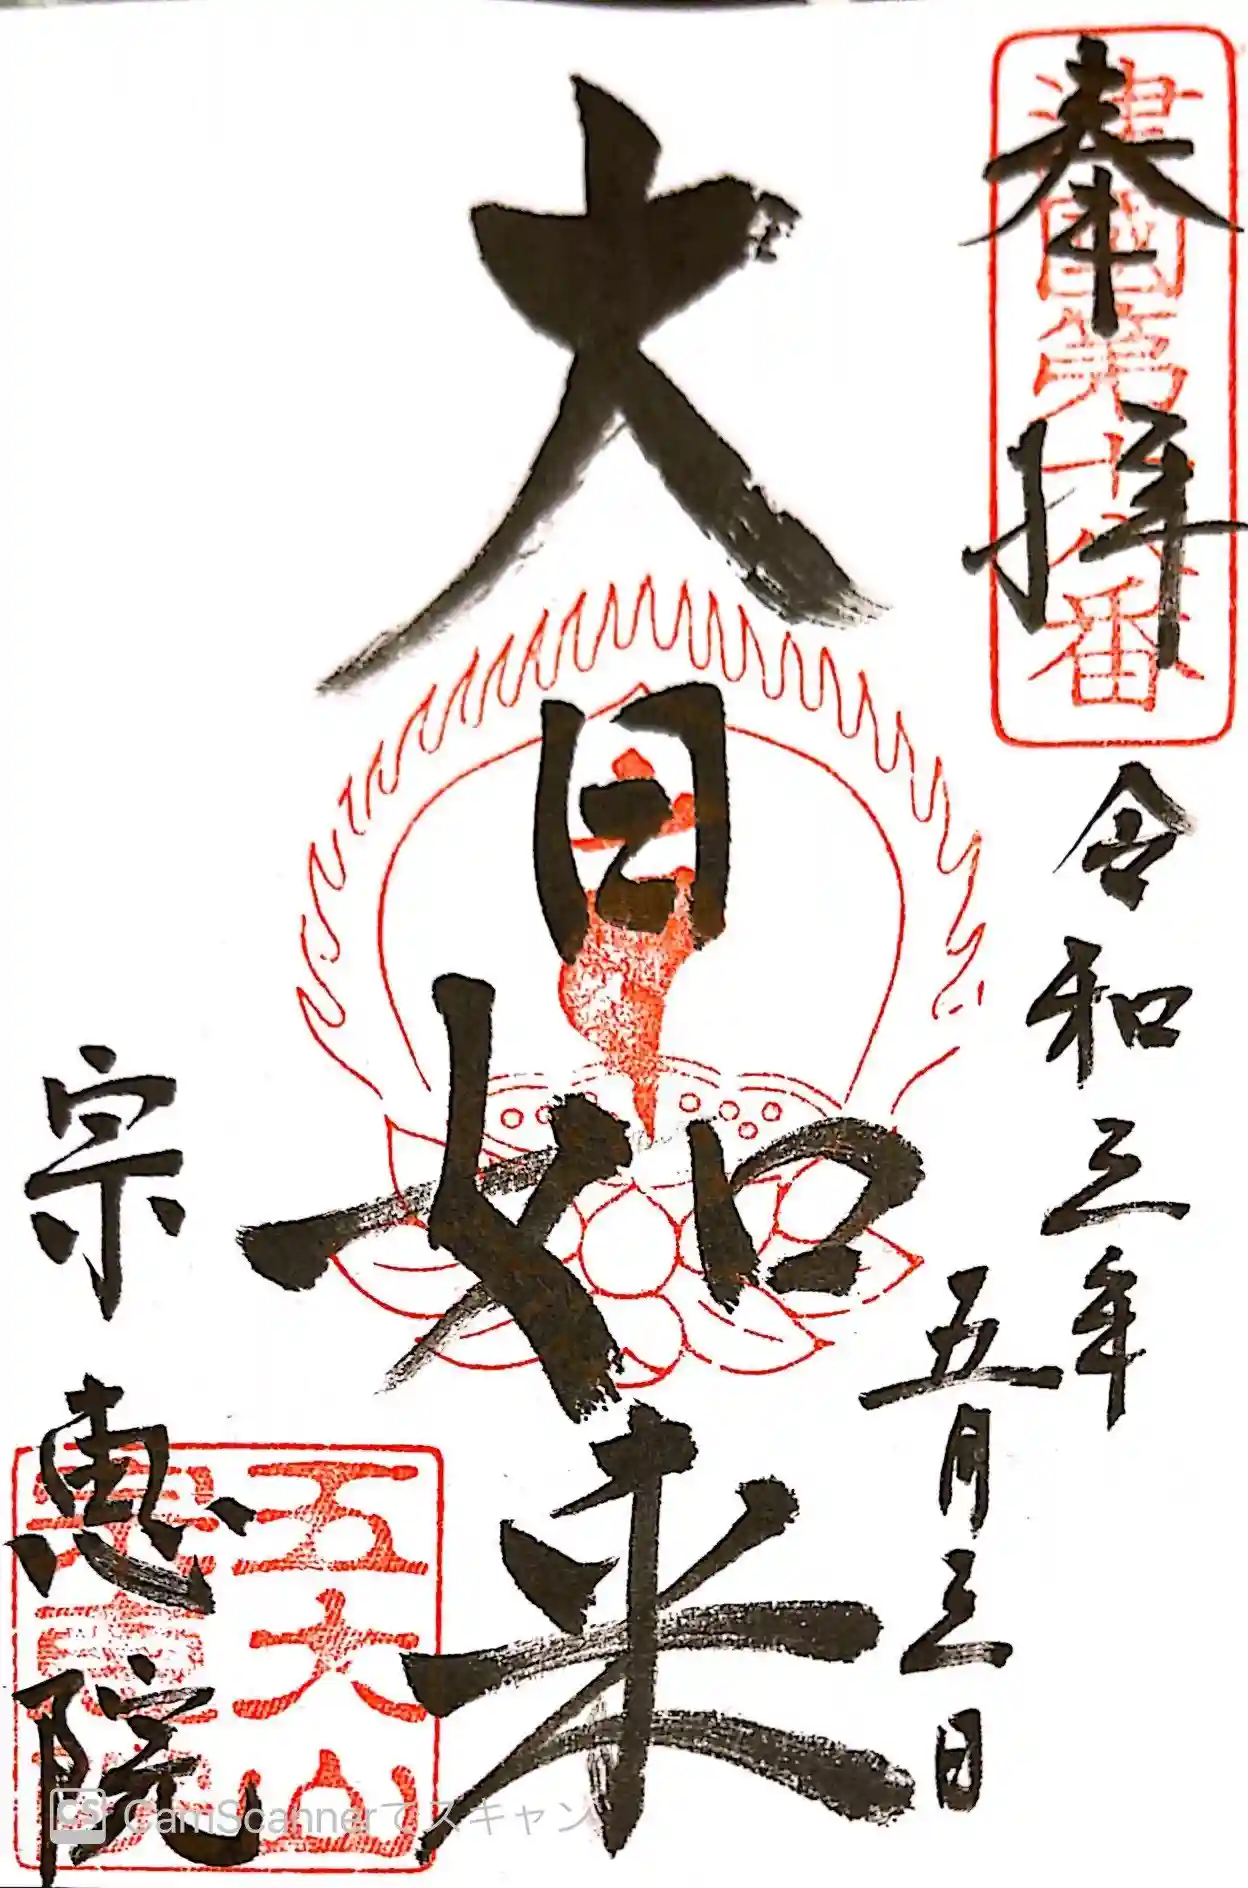 奉拝
令和三年
五月三日
大日如来
宗恵院
五大山
CS CamScannerでスキャン